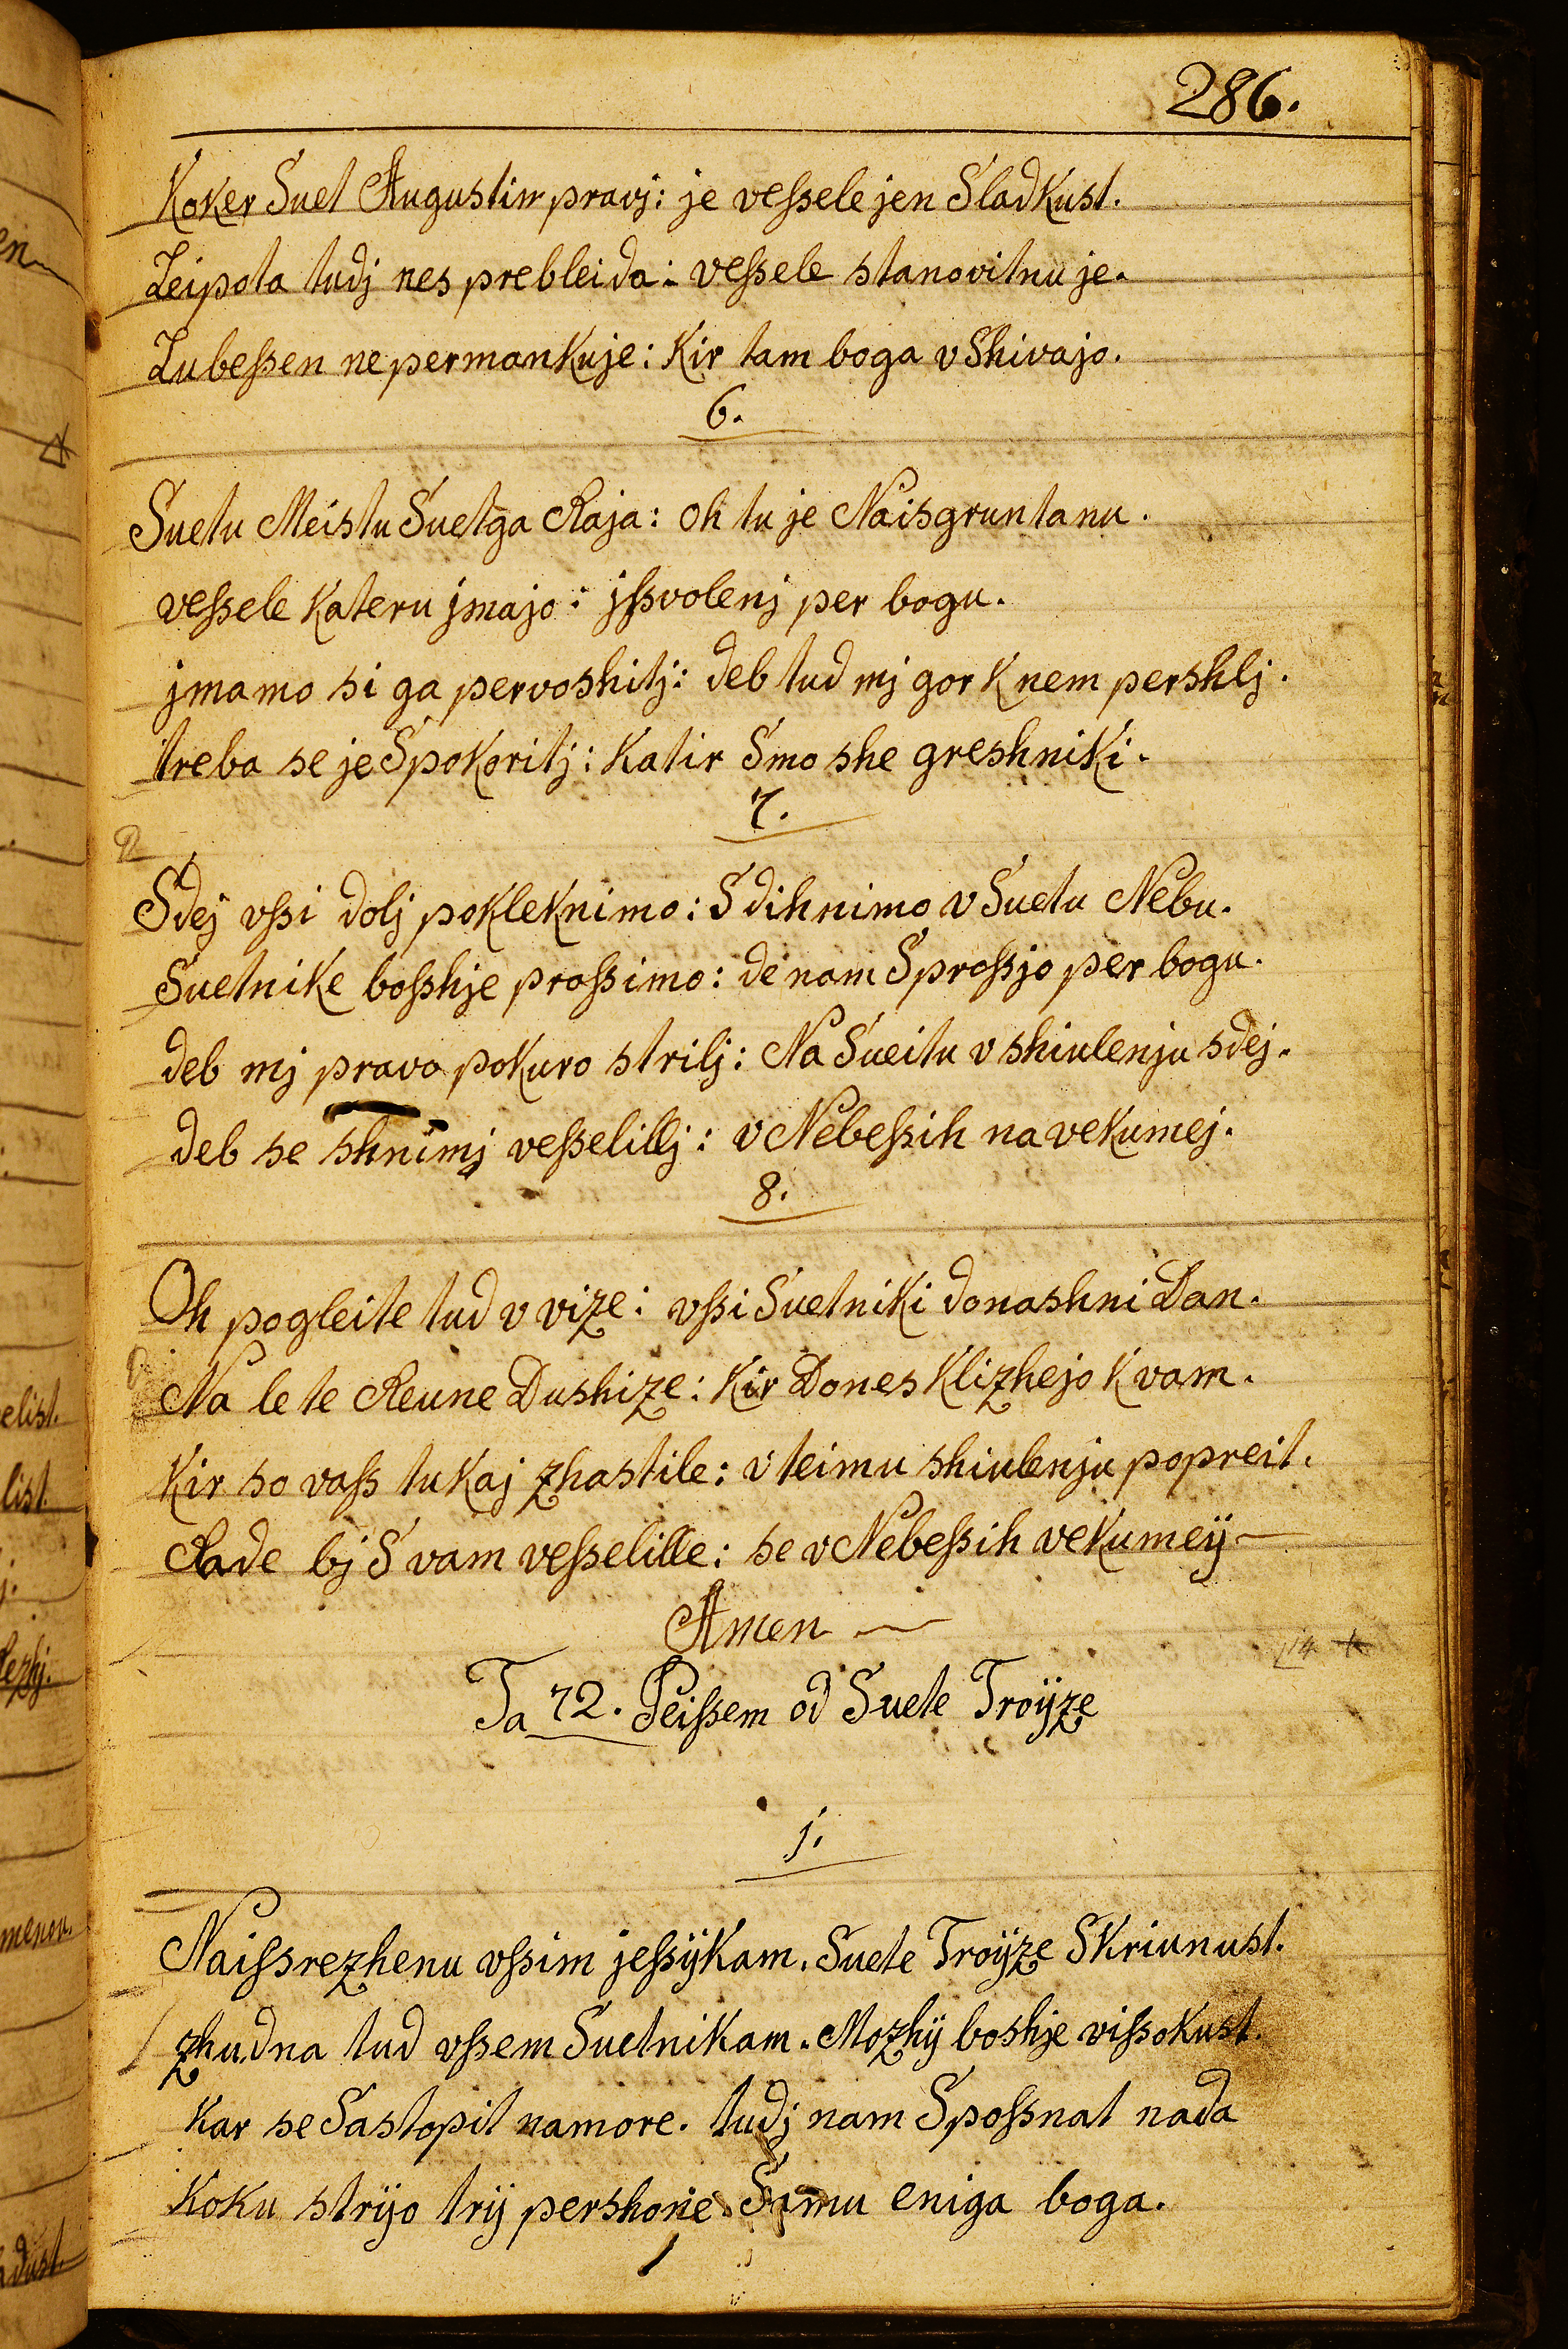 286.
Koker Suet Augustin pravj: je veſsele jen Sladkust.
Leipota tudj nes prebleida: veſsele stanovitnu je.
Lubeſsen ne permankuje: Kir tam boga vShivajo.
6.
Suetu Meistu Suetga Raja: oh tu je Naisgruntanu.
veſsele Kateru jmajo: jſsvolenj per bogu.
jmamo si ga pervoshitj: deb tud mj gor K nem pershlj.
treba se je Spokoritj: Katir Smo she greshniki.
7.
Sdej vſsi dolj pokleknimo: Sdihnimo v Suetu Nebu.
Suetnike boſshje proſsimo: de nam Sproſsjo per bogu.
deb mj pravo pokuro strilj: Na Sueitu v shiulenju sdej.
deb se shnimj veſselillj: v Nebeſsih na vekumej.
8.
Oh pogleite tud v vize: vſsi Suetniki donashni Dan.
Na le te Reune Dushize: Kir Dones Klizhejo K vam.
Kir so vaſs tukaj zhastile: v teimu shiulenju popreit.
Rade bj S vam veſselille: se v Nebeſsih vekumeÿ
Amen
14
Ta 72. Peiſsem od Suete Troÿze
1.
Naiſsrezhenu vſsim jeſsÿkam. Suete Troÿze Skriunust.
zhudna tud vſsem Suetnikam. Mozhÿ boshje viſsokust.
Kar se Sastopit namore. tudj nam Spoſsnat nada
Koku strÿo trÿ pershone. Samu eniga boga.